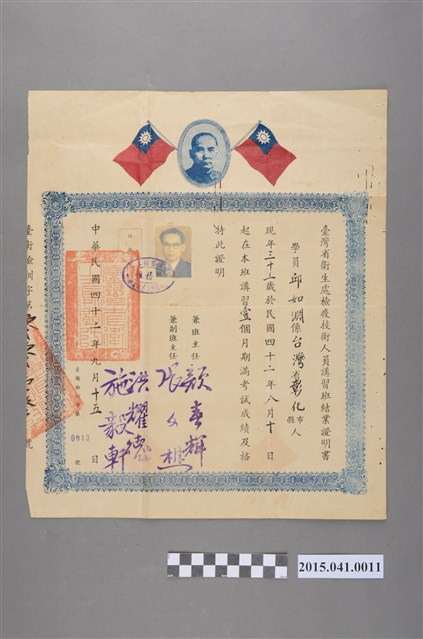 臺灣省衛生處檢疫技術人員講習班結業證明書
學員邱如淵係台灣省彰化市縣人
現年三十三歲於民國四十二年八月十日
起在本班講習壹個月期滿考試成績及格
特此證明
兼班主任 顏春輝
兼副班主任 張文樵
洪耀德
施毅軒
中華民國四十二年九月十五日
0013
號
2015.041.0011